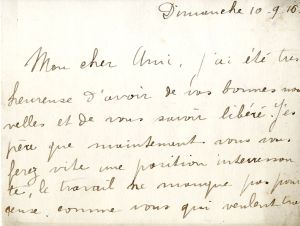 Dimanche 10-9-16
Mon cher Ami, j'ai été très
heureuse d'avoir de vos bonnes nou
velles et de vous savoir libéré. J'es
père que maintenant vous vous
ferez vite une position interessan
te, le travail ne manque pas pour
ceux, comme vous qui veulent tra